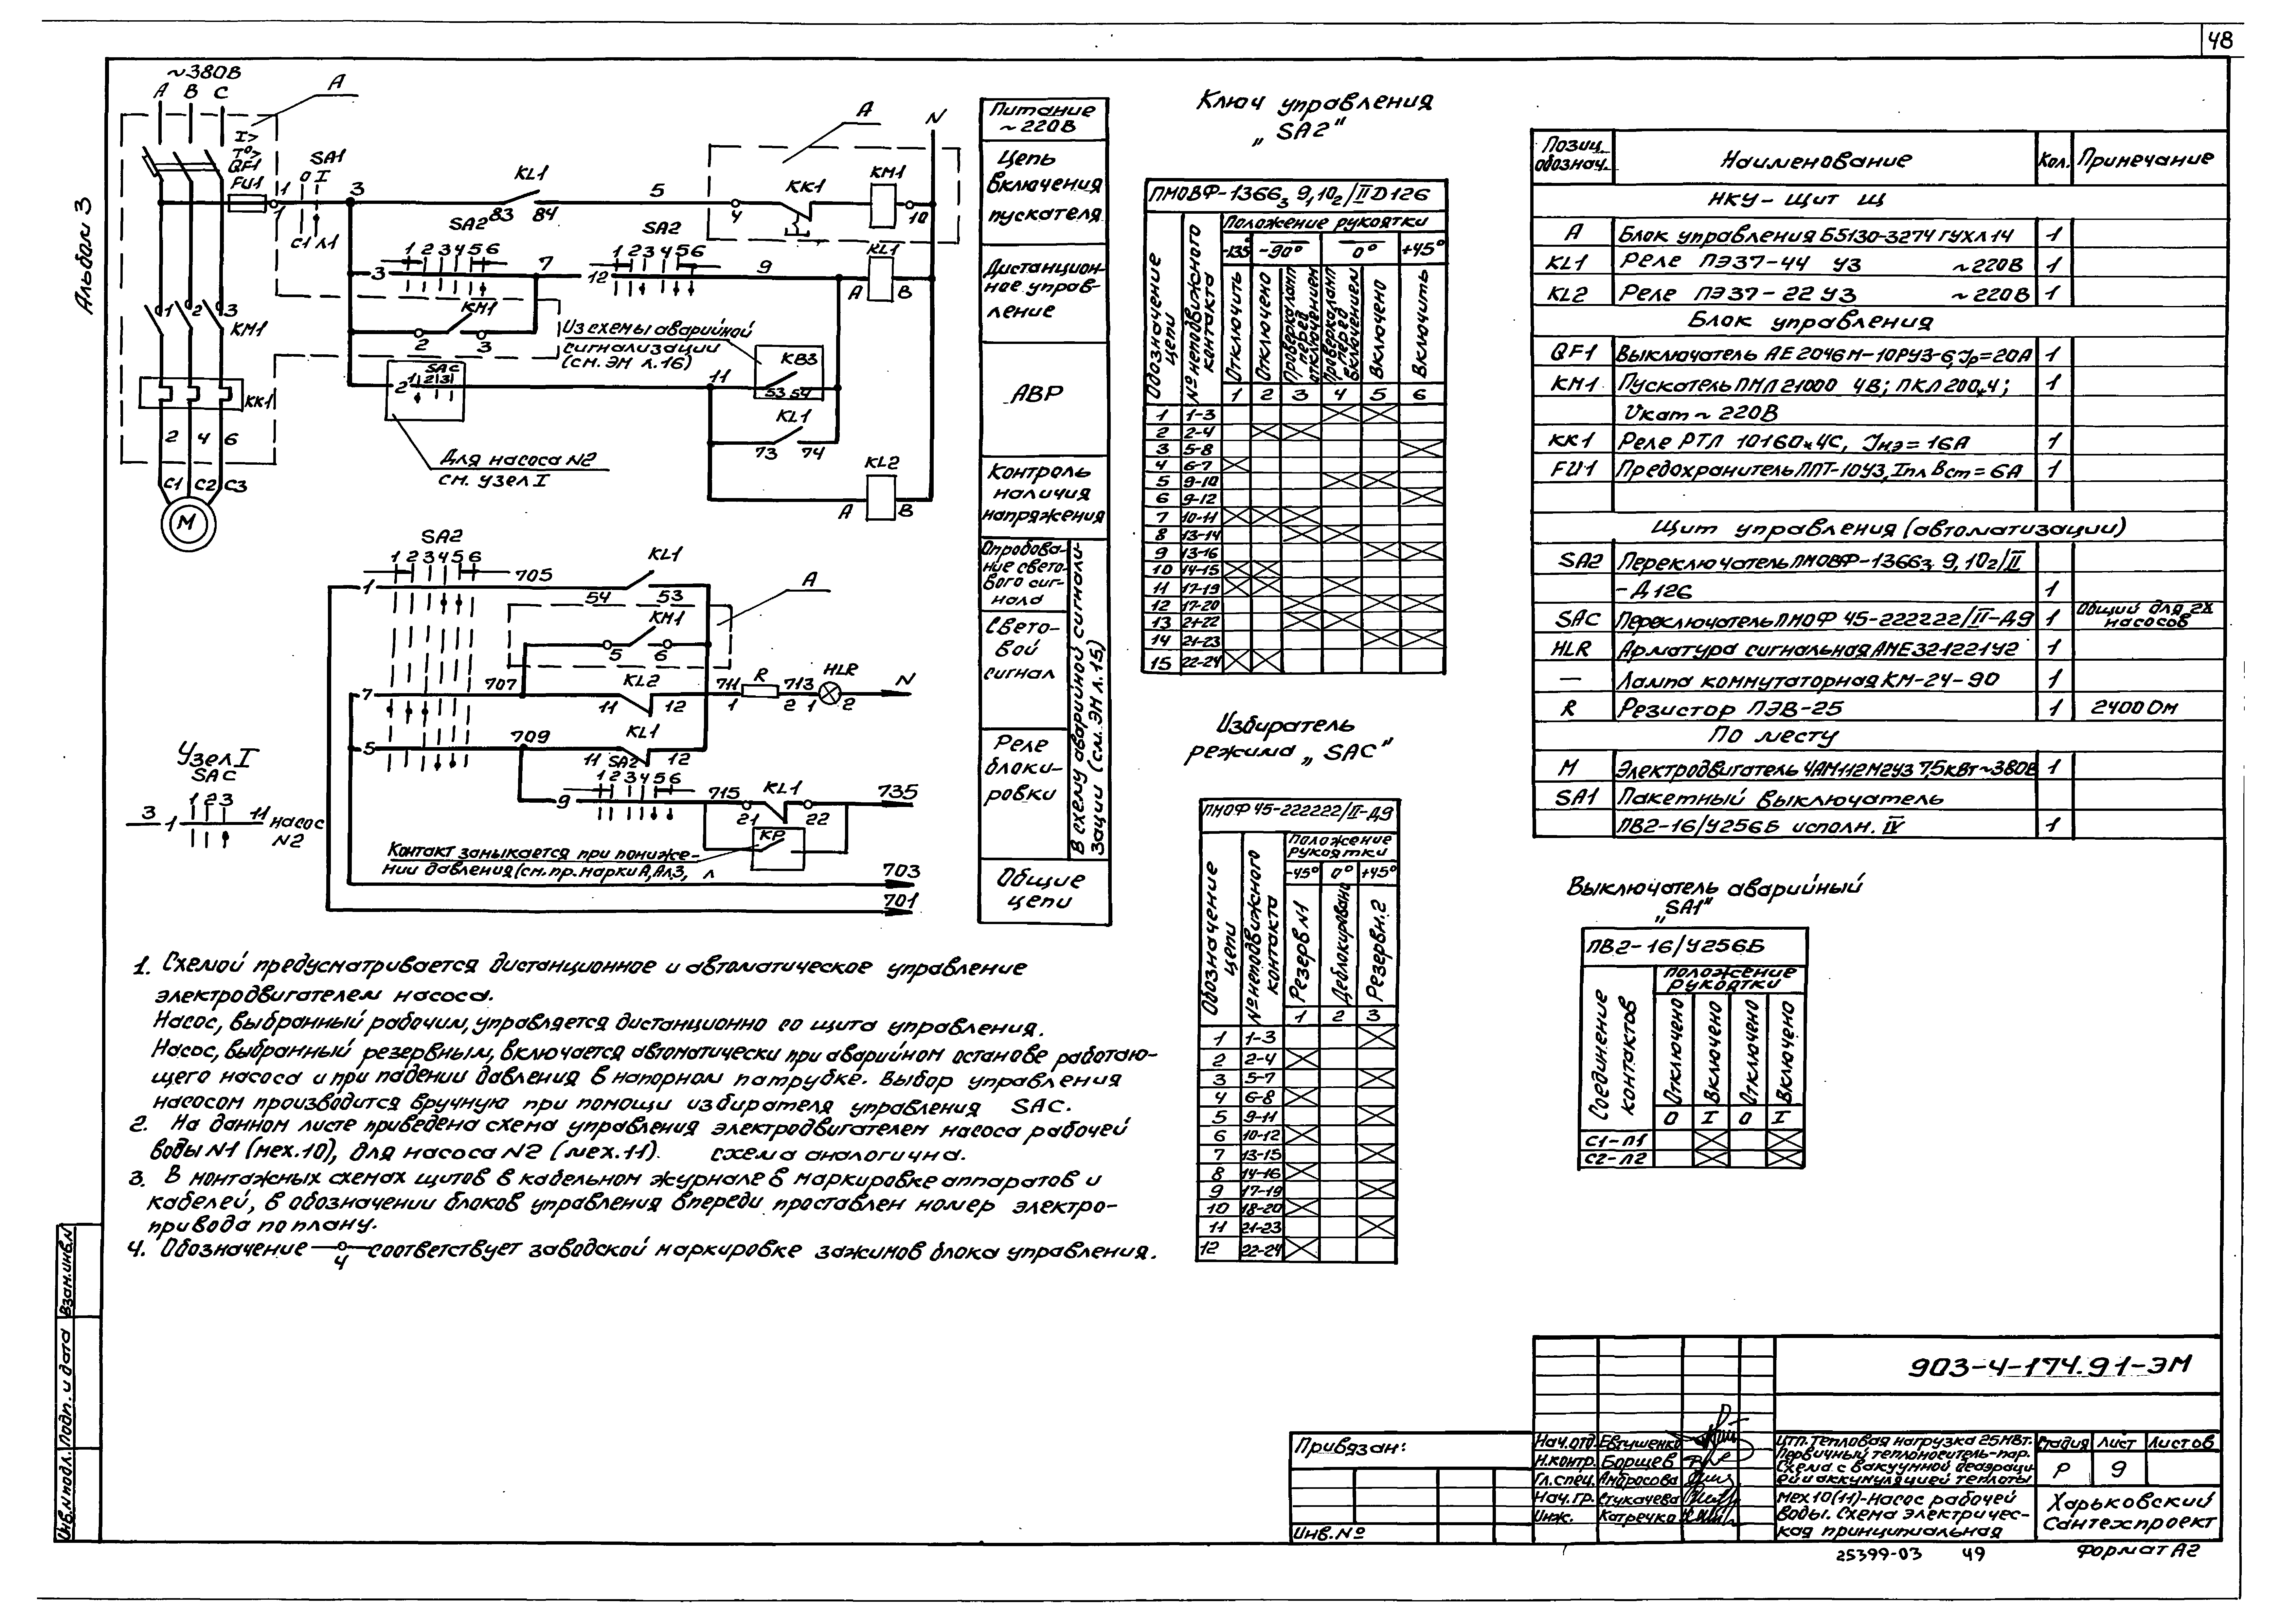 48
Альбом 3
~380В
А В С
А
I>
T°>
QF1
FU1
SA1
0 I
С1 Л1
1
1
3
KL1
83 84
5
А
N
4
KK1
KM1
10
SA2
1 2 3 4 5 6
3
7
SA2
1 2 3 4 5 6
12
9
KL1
А В
KM1
2 3
1 2 3
KM1
Из схемы аварийной
сигнализации
(см. ЭМ л.16)
KB3
53 54
SAC
1 2 3
2
11
KL1
73 74
Для насоса N2
см. узел I
KL2
А В
KK1
2 4 6
C1 C2 C3
М
SA2
1 2 3 4 5 6
1
705
KL1
54 53
А
KM1
5 6
7
707
KL2
11 12
711
R
1 2
713
HLR
1 2
N
5
709
KL1
11 12
SA2
1 2 3 4 5 6
9
715
KL1
21 22
735
KP
Контакт замыкается при пониже-
нии давления (см. пр. марки А, Ал.3, л
703
701
Узел I
SAC
1 2 3
3 1 11 насос
N2
Питание
~220В
Цепь
включения
пускателя
Дистанцион-
ное управ-
ление
АВР
Контроль
наличия
напряжения
Опробова-
ние свето-
вого сиг-
нала
Свето-
вой
сигнал
Реле
блоки-
ровки
В схему аварийной сигнали-
зации (см. ЭМ л.15)
Общие
цепи
Ключ управления
„SA2"
ПМОВФ-1366₃ 9,10₂/II Д126
Обозначение цепи
№ неподвижного контакта
Положение рукоятки
-135° -90° 0° +45°
Отключить
Отключено
Проверка ламп перед отключением
Проверка ламп перед включением
Включено
Включить
1 2 3 4 5 6
1 1-3
2 2-4
3 5-8
4 6-7
5 9-10
6 9-12
7 10-11
8 13-14
9 13-16
10 14-15
11 17-19
12 17-20
13 21-22
14 21-23
15 22-24
Избиратель
режима „SAC"
ПМОФ 45-222222/II-Д9
Обозначение цепи
№ неподвижного контакта
Положение
рукоятки
-45° 0° +45°
Резерв N1
Деблокировано
Резерв N.2
1 2 3
1 1-3
2 2-4
3 5-7
4 6-8
5 9-11
6 10-12
7 13-15
8 14-16
9 17-19
10 18-20
11 21-23
12 22-24
Позиц. обознач. Наименование Кол. Примечание
НКУ- щит Щ
А Блок управления Б5130-3274 ГУХЛ14 1
KL1 Реле ПЭ37-44 У3 ~220В 1
KL2 Реле ПЭ37-22 У3 ~220В 1
Блок управления
QF1 Выключатель АЕ2046М-10РУ3-б, Iр=20А 1
KM1 Пускатель ПМЛ 21000 4В; ПКЛ 200 4; 1
Uкат ~ 220В
KK1 Реле РТЛ 10160 4С, Iнэ = 16А 1
FU1 Предохранитель ППТ-10У3, Iпл вст = 6А 1
Щит управления (автоматизации)
SA2 Переключатель ПМОВФ-1366₃ 9,10₂/II
-Д126 1
SAC Переключатель ПМОФ 45-222222/II-Д9 1 Общий для 2х
насосов
HLR Арматура сигнальная АМЕ32122142 1
— Лампа коммутаторная КМ-24-90 1
R Резистор ПЭВ-25 1 2400 Ом
По месту
М Электродвигатель 4АМ112М2У3 7,5кВт ~380В 1
SA1 Пакетный выключатель
ПВ2-16/У256Б исполн. IV 1
Выключатель аварийный
„SA1"
ПВ2-16/У256Б
Соединение контактов
Положение
рукоятки
Отключено
Включено
Отключено
Включено
0 I 0 I
С1-Л1
С2-Л2
1. Схемой предусматривается дистанционное и автоматическое управление
электродвигателем насоса.
Насос, выбранный рабочим, управляется дистанционно со щита управления.
Насос, выбранный резервным, включается автоматически при аварийном останове работаю-
щего насоса и при падении давления в напорном патрубке. Выбор управления
насосом производится вручную при помощи избирателя управления SAC.
2. На данном листе приведена схема управления электродвигателем насоса рабочей
воды N1 (мех.10), для насоса N2 (мех.11). схема аналогична.
3. В монтажных схемах щитов в кабельном журнале в маркировке аппаратов и
кабелей, в обозначении блоков управления впереди проставлен номер электро-
привода по плану.
4. Обозначение 4 соответствует заводской маркировке зажимов блока управления.
Взам. инв. N
Подп. и дата
Инв. N подл.
Привязан:
Инв. №
903-4-174.91-ЭМ
Нач. отд. Евтушенко
Н.контр. Борщев
Гл. спец. Амбросова
Нач. гр. Стукачева
Инж. Катречко
ЦТП. Тепловая нагрузка 25 МВт.
Первичный теплоноситель-пар.
Схема с вакуумной деаэраци-
ей и аккумуляцией теплоты
Стадия Лист Листов
Р 9
Мех 10(11)-Насос рабочей
воды. Схема электричес-
кая принципиальная
Харьковский
Сантехпроект
25399-03 49
Формат А2